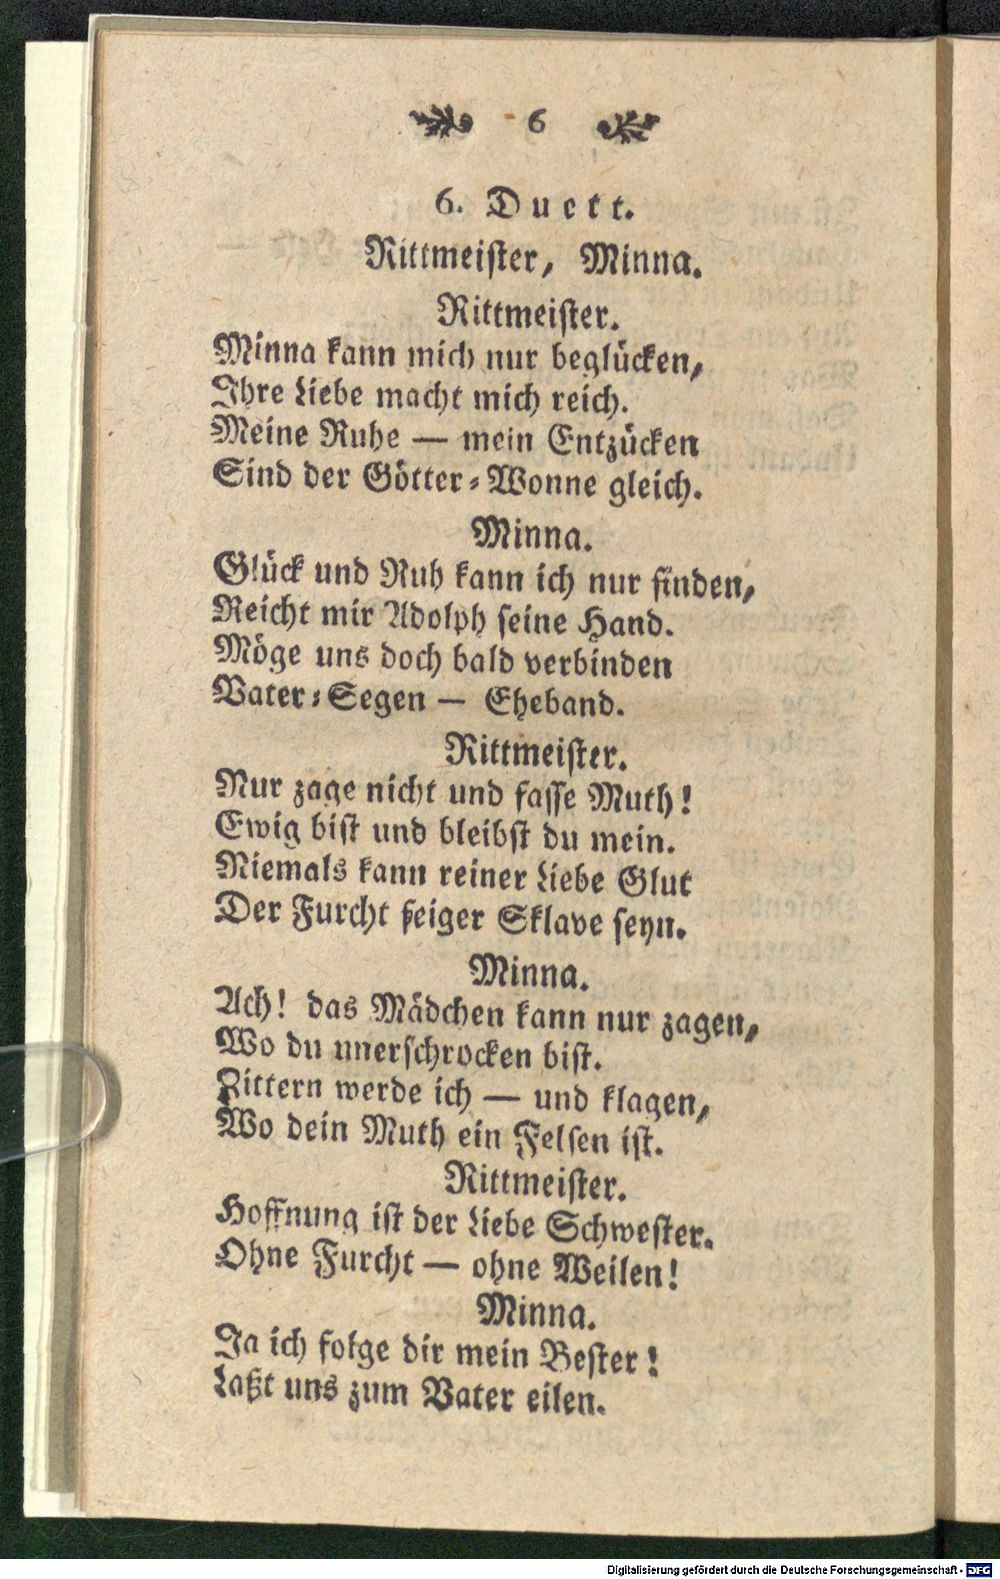 6
6. Duett.
Rittmeister, Minna.
Rittmeister.
Minna kann mich nur beglücken,
Ihre Liebe macht mich reich.
Meine Ruhe — mein Entzücken
Sind der Götter-Wonne gleich.
Minna.
Glück und Ruh kann ich nur finden,
Reicht mir Adolph seine Hand.
Möge uns doch bald verbinden
Vater-Segen — Eheband.
Rittmeister.
Nur zage nicht und fasse Muth!
Ewig bist und bleibst du mein.
Niemals kann reiner Liebe Glut
Der Furcht feiger Sklave seyn.
Minna.
Ach! das Mädchen kann nur zagen,
Wo du unerschrocken bist.
Zittern werde ich — und klagen,
Wo dein Muth ein Felsen ist.
Rittmeister.
Hoffnung ist der Liebe Schwester.
Ohne Furcht — ohne Weilen!
Minna.
Ja ich folge dir mein Bester!
Laßt uns zum Vater eilen.
Digitalisierung gefördert durch die Deutsche Forschungsgemeinschaft - DFG